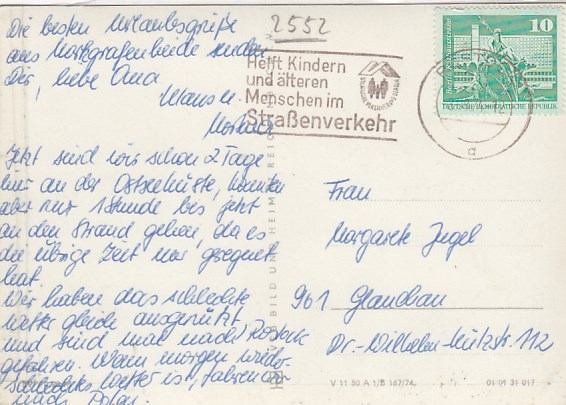 Die besten Urlaubsgrüße
aus Markgrafenheide senden
Dir, liebe Oma
Klaus u.
Jetzt sind wir schon 2 Tage
hier an der Ostseeküste, konnten
aber nur 1 Stunde bis jetzt
an den Strand gehen, da es
die übrige Zeit nur geregnet
hat.
Wir haben das schlechte
Wetter gleich ausgenützt
und sind mal nach Rostock
gefahren. Wenn morgen wieder
schlechtes Wetter ist, fahren wir
nach
2552
Helft Kindern
und älteren
Menschen im
Straßenverkehr
10
DEUTSCHE DEMOKRATISCHE REPUBLIK
a
BILD UND HEIMAT REICHENBACH
Frau
Margarete Jugel
961 Glauchau
Dr.-Wilhelm-Külz-str. 112
V 11 50 A 1/B 167/74
01 04 31 017